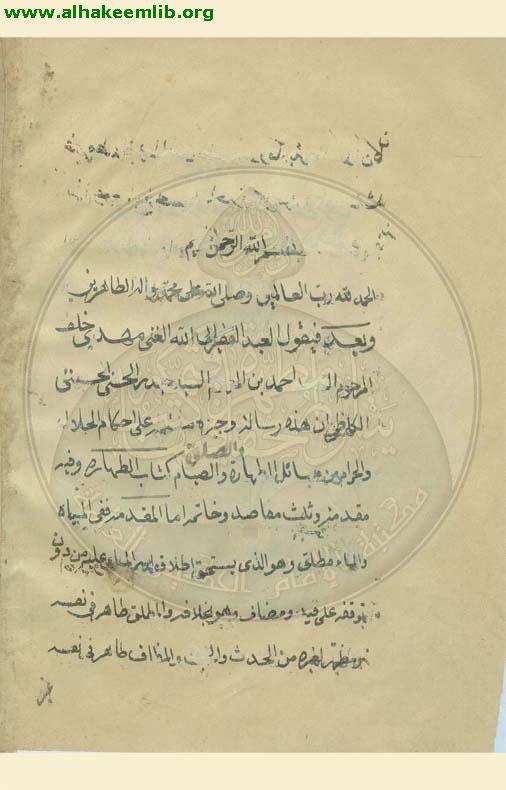 www.alhakeemlib.org
بسم الله الرحمن الرحيم
الحمد لله رب العالمين وصلى الله على محمد واله الطاهرين
وبعد فيقول العبد الفقير الى الله الغني مهدي خلف
المرحوم السيد احمد بن المرحوم السيد حيدر الحسني الحسيني
الكاظمي ان هذه رسالة وجيزة تشتمل على احكام الحلال
والصلوة
والحرام من مسائل الطهارة والصيام كتاب الطهارة وفيه
مقدمة وثلث مقاصد وخاتمة اما المقدمة ففي المياه
والماء مطلق وهو الذي يستحق اطلاق اسم الماء عليه من دون
توقفه على قيد ومضاف وهو بخلافه والمطلق طاهر في نفسه
مطهر لغيره من الحدث والخبث والمضاف طاهر في نفسه